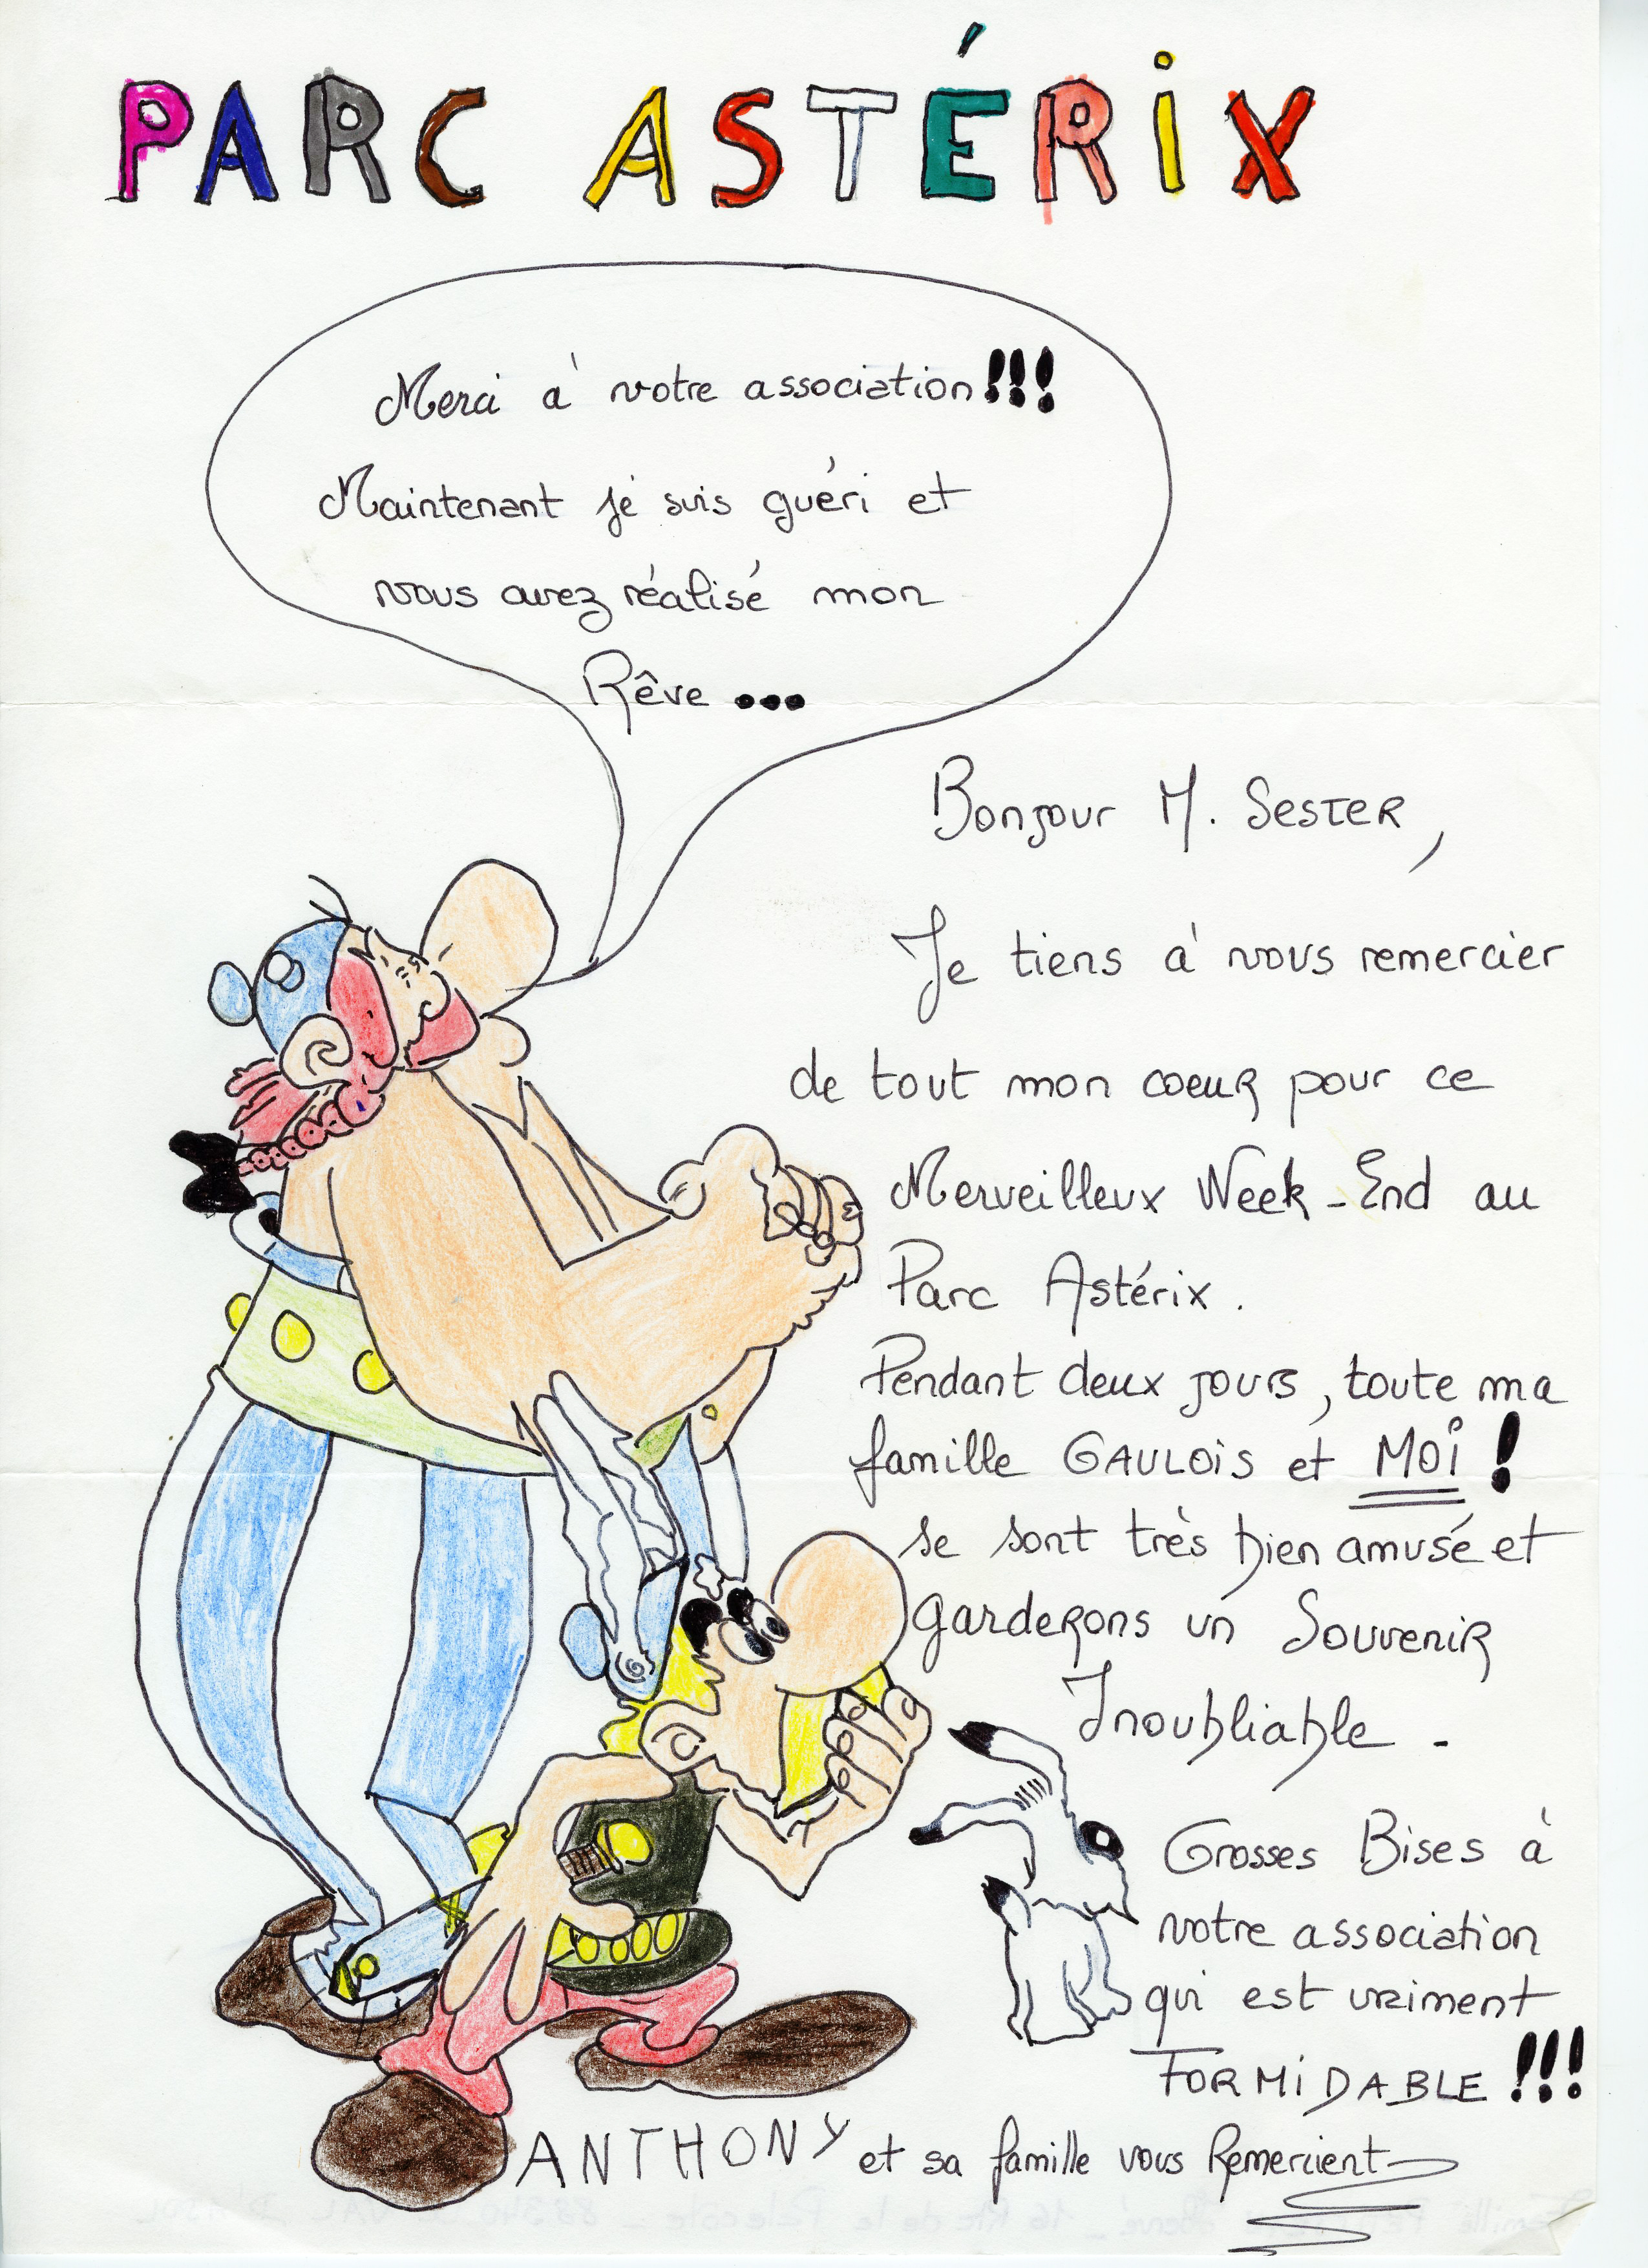 PARC ASTÉRiX
Merci à votre association!!!
Maintenant je suis guéri et
vous avez réalisé mon
Rêve ...
Bonjour M. SESTER,
Je tiens à vous remercier
de tout mon coeur pour ce
Merveilleux Week-End au
Parc Astérix.
Pendant deux jours, toute ma
famille GAULOiS et MOi !
se sont très bien amusé et
garderons un Souvenir
Inoubliable -
Grosses Bises à
votre association
qui est vraiment
FORMiDABLE !!!
ANTHONY et sa famille vous Remercient